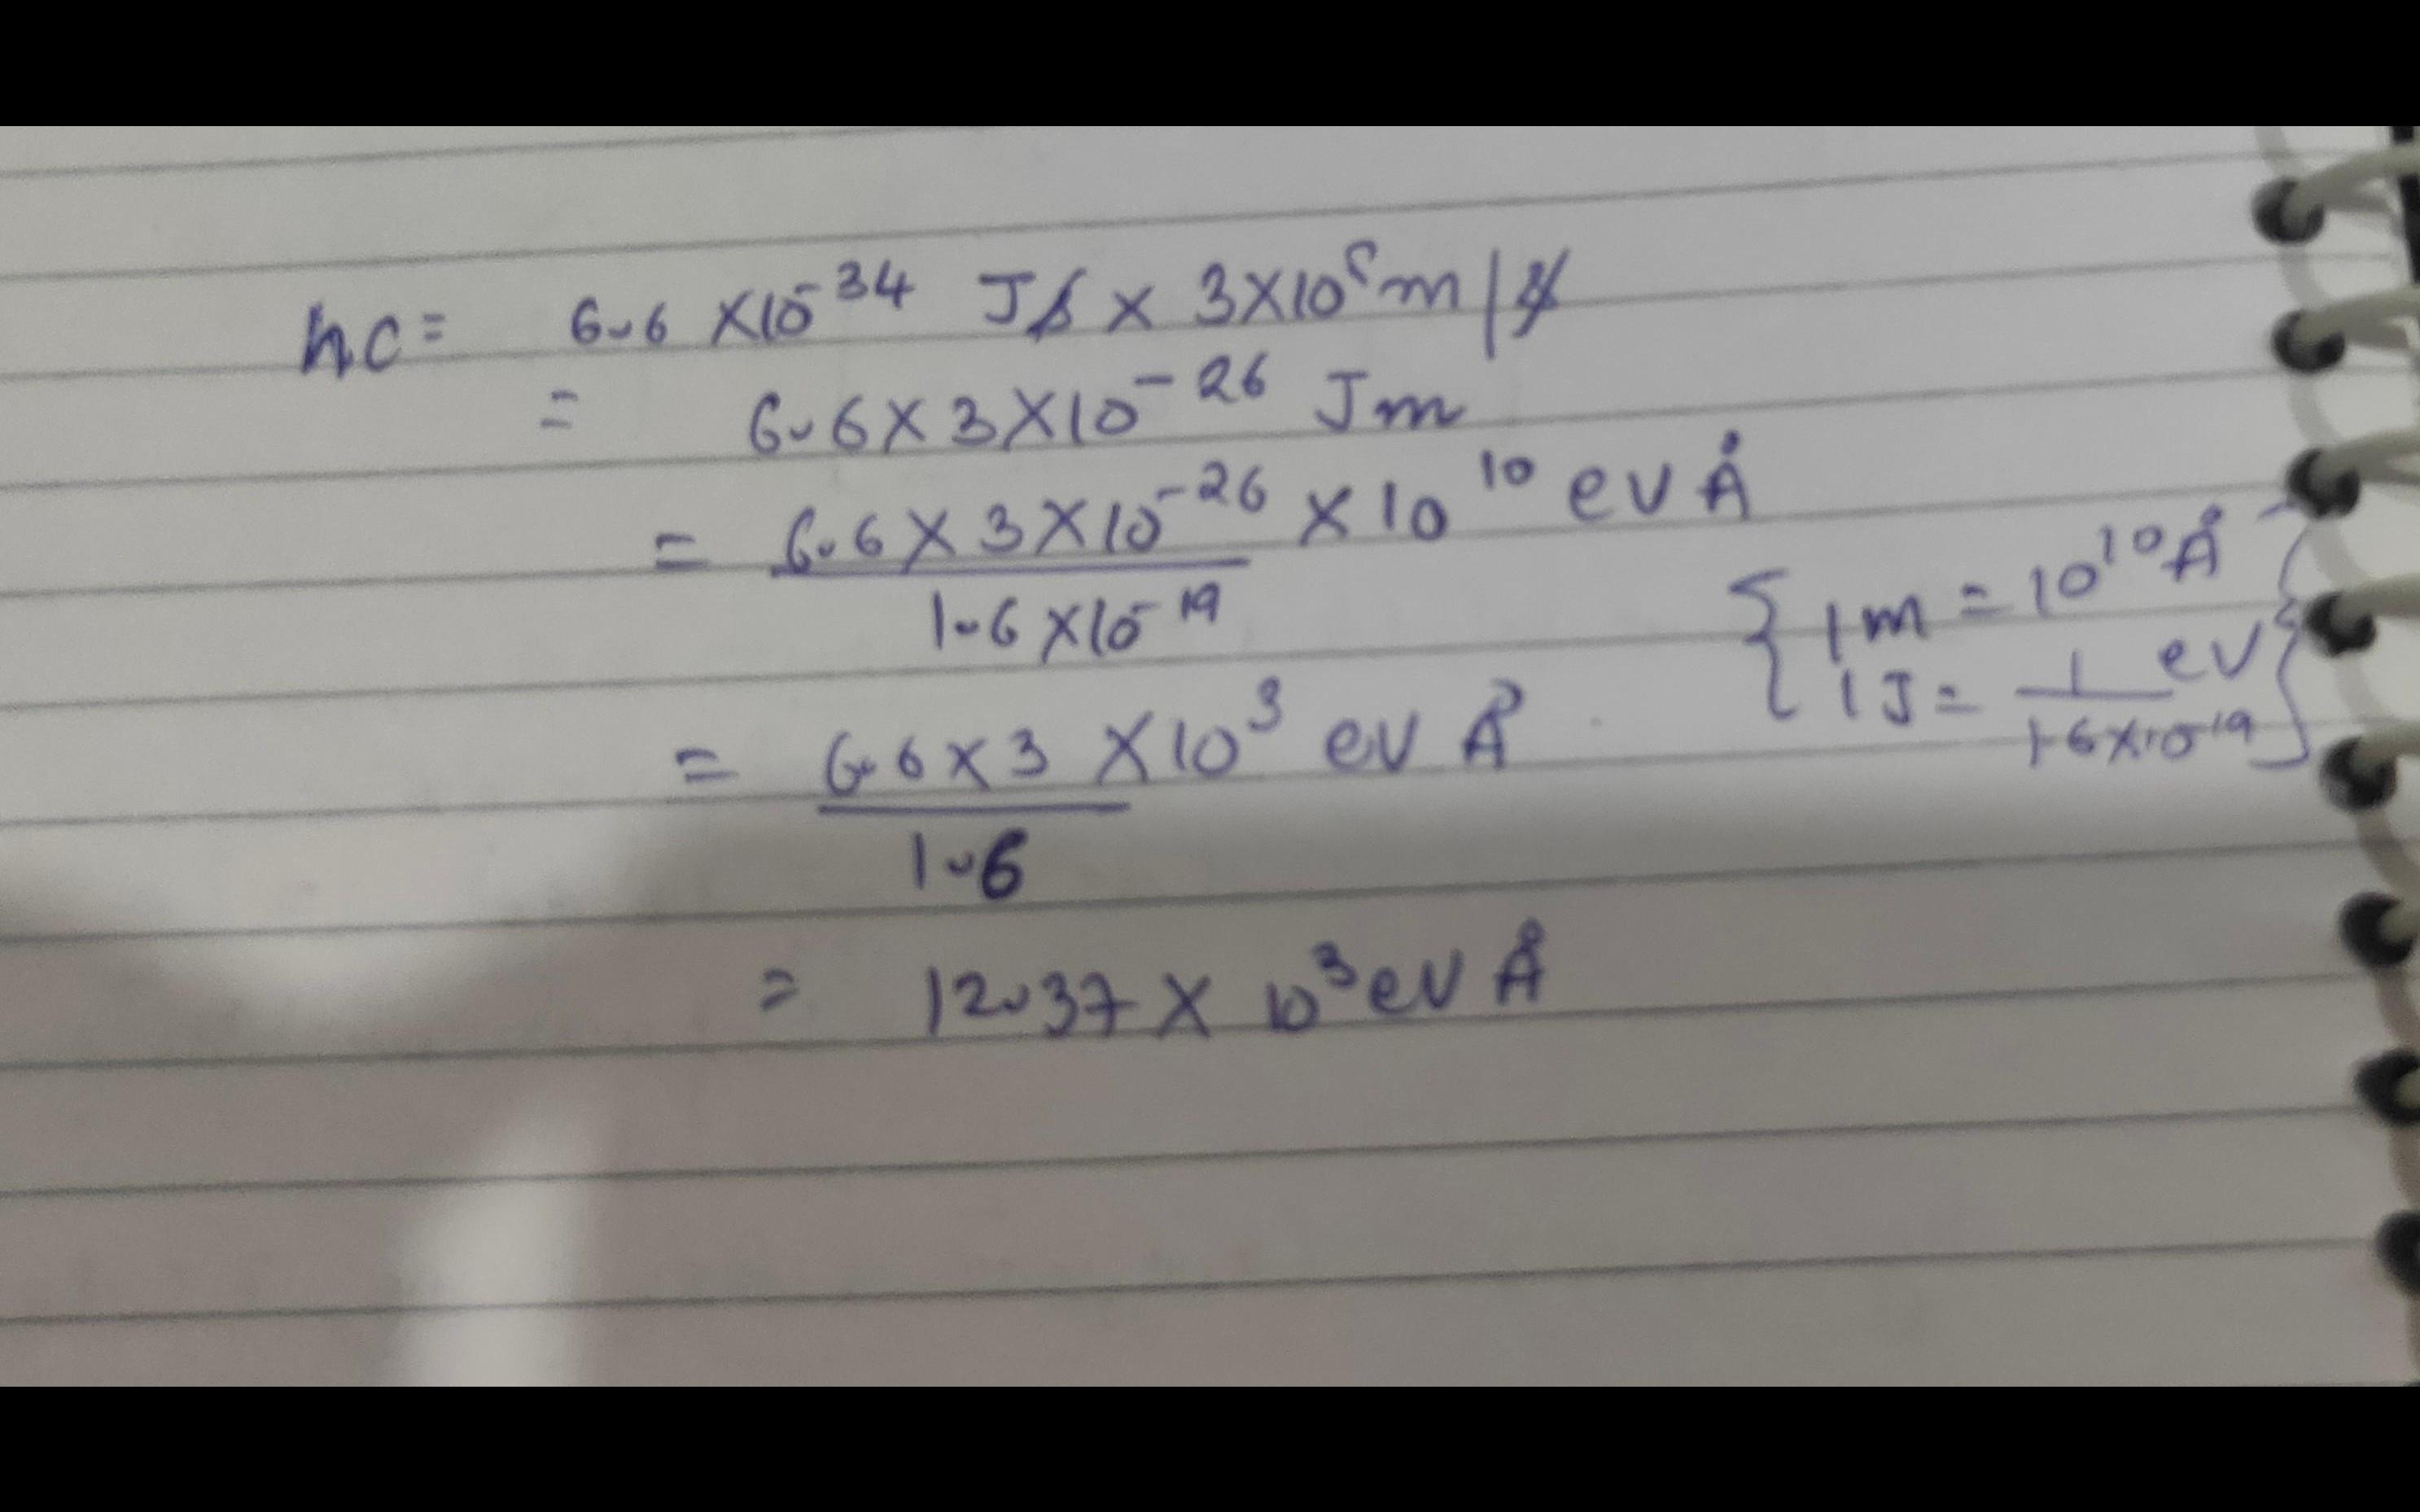 hc = 6.6 × 10⁻³⁴ Js × 3×10⁸ m/s
= 6.6 × 3 × 10⁻²⁶ Jm
= 6.6 × 3 × 10⁻²⁶ / 1.6 × 10⁻¹⁹ × 10¹⁰ eV Å
{ 1 m = 10¹⁰ Å
1 J = 1 / 1.6×10⁻¹⁹ eV }
= 6.6 × 3 / 1.6 × 10³ eV Å
= 12.37 × 10³ eV Å